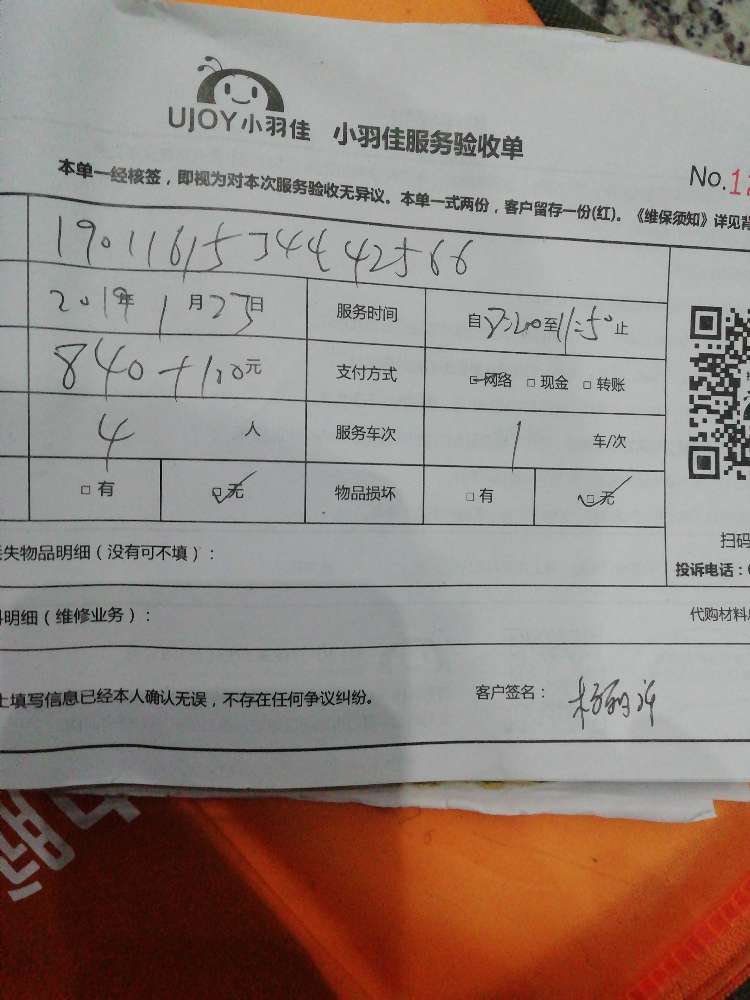 UJOY小羽佳 小羽佳服务验收单
No.12
本单一经核签，即视为对本次服务验收无异议。本单一式两份，客户留存一份(红)。《维保须知》详见背
19011615344442566
2019年1月23日 服务时间 自8:20至11:50止
840+100元 支付方式 □网络 □现金 □转账
4人 服务车次 1车/次
□有 □无 物品损坏 □有 □无
失物品明细（没有可不填）：
扫码
投诉电话：
明细（维修业务）：
代购材料
填写信息已经本人确认无误，不存在任何争议纠纷。
客户签名：